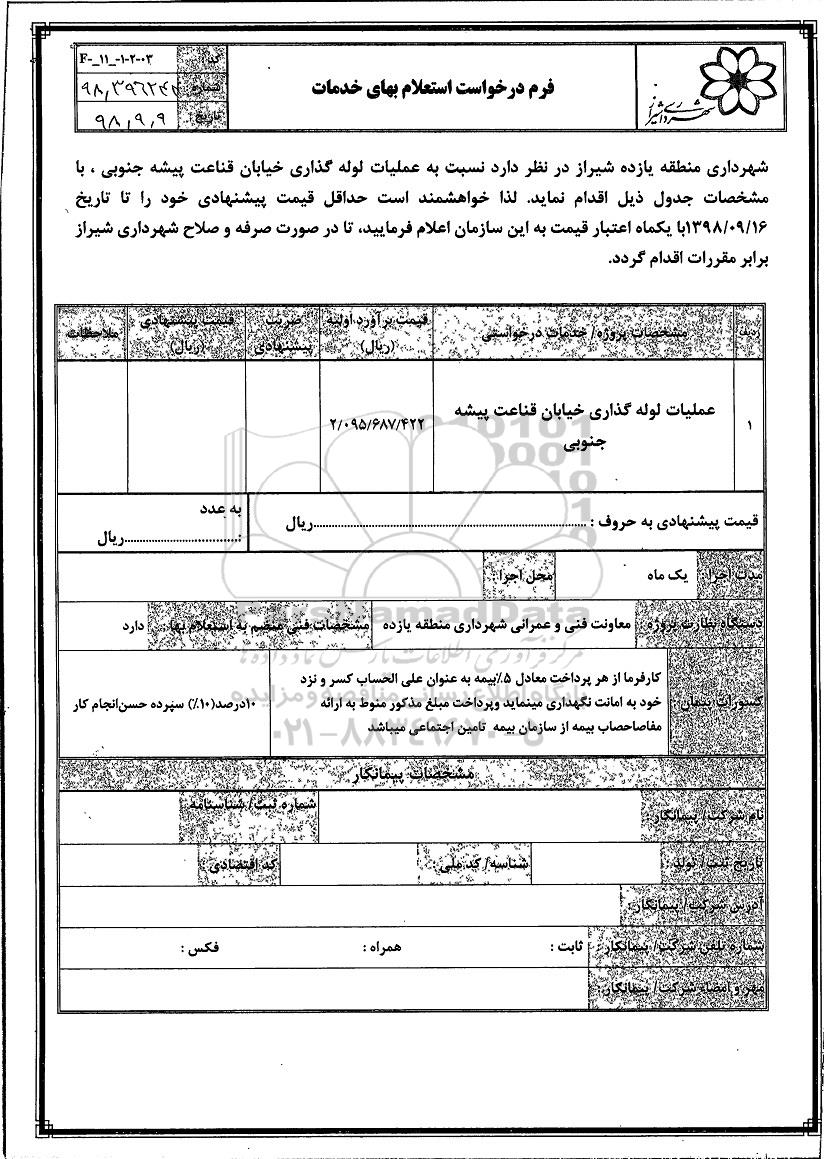 کد: F-_11_-1-2-03
شماره: ۹۸,۳۹۶۲۴۲
تاریخ: ۹۸,۹,۹
فرم درخواست استعلام بهای خدمات
شهرداری شیراز
شهرداری منطقه یازده شیراز در نظر دارد نسبت به عملیات لوله گذاری خیابان قناعت پیشه جنوبی ، با
مشخصات جدول ذیل اقدام نماید. لذا خواهشمند است حداقل قیمت پیشنهادی خود را تا تاریخ
۱۳۹۸/۰۹/۱۶با یکماه اعتبار قیمت به این سازمان اعلام فرمایید، تا در صورت صرفه و صلاح شهرداری شیراز
برابر مقررات اقدام گردد.
ردیف مشخصات پروژه/ خدمات درخواستی قیمت برآورد اولیه (ریال) ضریب پیشنهادی قیمت پیشنهادی (ریال) ملاحظات
۱ عملیات لوله گذاری خیابان قناعت پیشه ۲/۰۹۵/۶۸۷/۴۲۲
جنوبی
قیمت پیشنهادی به حروف : ......................................................................ریال
به عدد
:.................................ریال
مدت اجرا : یک ماه محل اجرا :
دستگاه نظارت پروژه : معاونت فنی و عمرانی شهرداری منطقه یازده مشخصات فنی منضم به استعلام بها : دارد
کسورات پیمان :
کارفرما از هر پرداخت معادل ۵٪بیمه به عنوان علی الحساب کسر و نزد
خود به امانت نگهداری مینماید وپرداخت مبلغ مذکور منوط به ارائه
مفاصاحصاب بیمه از سازمان بیمه تامین اجتماعی میباشد
۱۰درصد(۱۰٪) سپرده حسن‌انجام کار
مشخصات پیمانکار
نام شرکت/ پیمانکار : شماره ثبت/ شناسنامه :
تاریخ ثبت/ تولد : شناسه/ کد ملی : کد اقتصادی :
آدرس شرکت/ پیمانکار :
شماره تلفن شرکت/ پیمانکار : ثابت : همراه : فکس :
مهر و امضاء شرکت/ پیمانکار :
ParsNamadData
مرکز فرآوری اطلاعات پارس نماد داده ها
پایگاه اطلاع رسانی مناقصه و مزایده